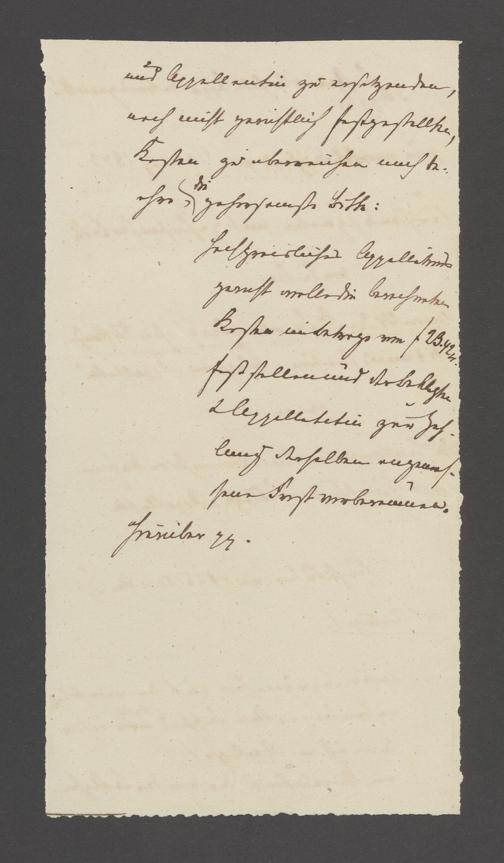 und Appellantin zu ersetzenden,
noch nicht gerichtlich festgestellten,
Kosten zu überreichen nach be-
ehre, die gehorsamste Bitte:
Hochpreisliches Appellations
gericht wolle die berechneten
Kosten im Betrage von f 23.42
feststellen und der beklagten
& Appellatin zur Zah-
lung derselben angemes-
sene Frist anberaumen.
Hierüber pp.